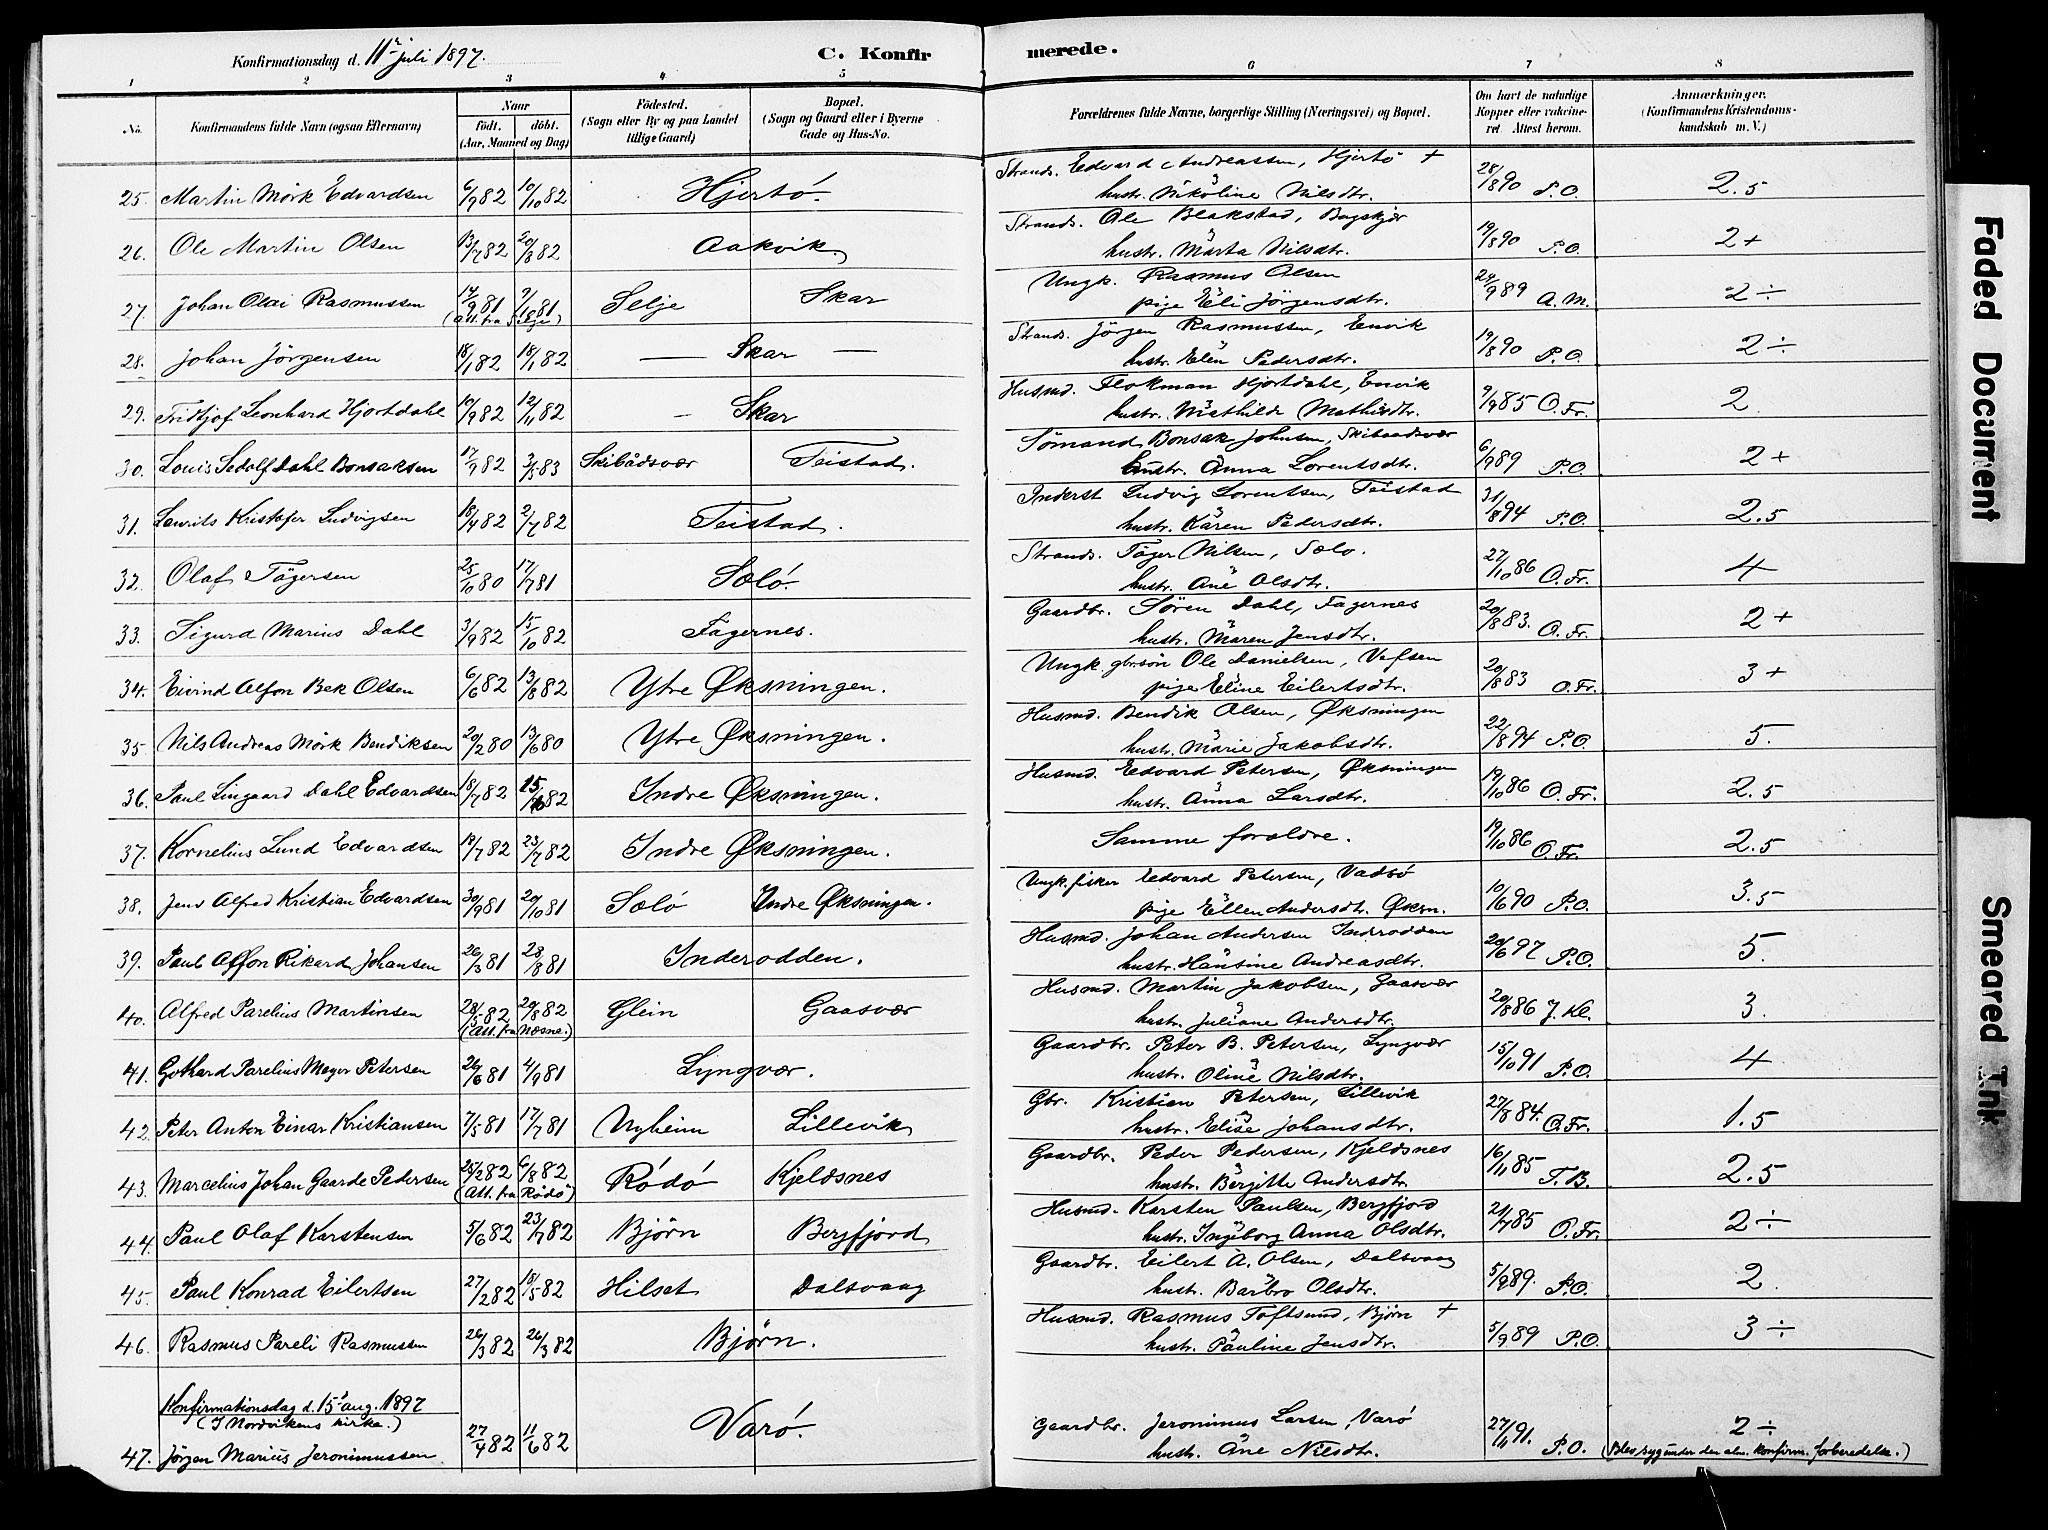 Konfirmationsdag d. 11te juli 1897. C. Konfirmerede.
1 2 3 4 5 6 7 8
No. Konfirmandens fulde Navn (ogsaa Efternavn) Naar født. døbt. (Aar, Maaned og Dag) Fødested. (Sogn eller By og paa Landet tillige Gaard) Bopæl. (Sogn og Gaard eller i Byerne Gade og Hus-No. Forældrenes fulde Navne, borgerlige Stilling (Næringsvei) og Bopæl. Om havt de naturlige Kopper eller vakcineret Attest herom. Anmærkninger. (Konfirmandens Kristendomskundskab m. V.)
25. Martin Mörk Edvardsen 6/9 82 10/10 82 Hjertö. Strands. Edvard Andreassen, Hjertö + 28/8 90 P.O. 2.5
hustr. Nikoline Nilsdtr.
26. Ole Martin Olsen 13/7 82 20/8 82 Aakvik. Strands. Ole Blakstad, Bagskjær 19/8 90 P.O. 2+
hustr. Marta Nilsdtr.
27. Johan Olai Rasmussen 14/9 81 9/1 81 Selje Skar Ungk. Rasmus Olsen 24/9 89 A.M. 2÷
(Att. fra Selje) pige Eli Jörgensdtr.
28. Johan Jörgensen 18/1 82 18/1 82 — Skar — Strands. Jörgen Rasmussen, Envik 19/8 90 P.O. 2÷
hustr. Elen Pedersdtr.
29. Fridtjof Leonhard Hjortdahl 10/9 82 12/11 82 — Skar Husmd. Flokman Hjortdahl, Envik 9/9 85 O.Fr. 2.
hustr. Mathilde Mathisdtr.
30. Louis Sedolf Dahl Bonsaksen 17/9 82 3/5 83 Skibådsvær Teistad. Sömand Bonsak Johnsen, Skibaadsvær 6/9 89 P.O. 2+
hustr. Anna Lorentsdtr.
31. Laurits Kristofer Ludvigsen 18/4 82 2/7 82 Teistad. Inderst Ludvig Lorentsen, Teistad 31/8 94 P.O. 2.5
hustr. Karen Pedersdtr.
32. Olaf Tögersen 25/10 80 17/7 81 Sölö. Strands. Töger Nilsen, Sölö. 27/10 86 O.Fr. 4
hustr. Ane Olsdtr.
33. Sigurd Marius Dahl 3/9 82 15/10 82 Fagernes. Gaardbr. Sören Dahl, Fagernes 20/8 83. O.Fr. 2+
hustr. Maren Jensdtr.
34. Eivind Alfon Bek Olsen 6/6 82 13/8 82 Ytre Øksningen. Ungk. gbr.sön Ole Danielsen, Vefsen 20/8 83 O.Fr. 3+
pige Eline Eilertsdtr.
35. Nils Andreas Mörk Bendiksen 20/2 80 13/6 80 Ytre Øksningen. Husmd. Bendik Olsen, Øksningen 22/8 94 P.O. 5.
hustr. Marie Jakobsdtr.
36. Paul Lingaard Dahl Edvardsen 18/7 82 15/10 82 Indre Øksningen. Husmd. Edvard Petersen, Øksningen 19/10 86 O.Fr. 2.5
hustr. Anna Larsdtr.
37. Kornelius Lund Edvardsen 18/7 82 23/7 82 Indre Øksningen. Samme forældre. 19/10 86 O.Fr. 2.5
38. Jens Alfred Kristian Edvardsen 30/9 81 20/10 81 Sölö Indre Øksningen. Ungk. fisker Edvard Petersen, Vadsö 10/6 90 P.O. 3.5
pige Ellen Andersdtr. Øksn.
39. Paul Alfon Rikard Johansen 26/3 81 28/8 81 Inderodden. Husmd. Johan Andersen Inderodden 20/6 97 P.O. 5.
hustr. Hansine Andreasdtr.
40. Alfred Parelius Martinsen 28/5 82 20/8 82 Glein Gaasvær Husmd. Martin Jakobsen, Gaasvær 20/8 86 J. Kl. 3.
(Att. fra Næsne.) hustr. Juliane Andersdtr.
41. Gothard Parelius Meyer Petersen 26/6 81 4/9 81 Lyngvær. Gaardbr. Peter B. Petersen, Lyngvær 15/10 91 P.O. 4
hustr. Oline Nilsdtr.
42. Peter Anton Einar Kristiansen 7/5 81 17/7 81 Nyheim Lillevik Gbr. Kristian Petersen, Lillevik 27/8 84. O.Fr. 1.5
hustr. Elise Johansdtr.
43. Marcelius Johan Gaarde Pedersen 25/2 82 6/8 82 Rödö Kjeldsnes Gaardbr. Peder Pedersen, Kjeldsnes 16/11 85 T.B. 2.5
(Att. fra Rödö) hustr. Bergitte Andersdtr.
44. Paul Olaf Karstensen 5/6 82 23/7 82 Björn Bergfjord Husmd. Karsten Paulsen, Bergfjord 21/7 85 O.Fr. 2÷
hustr. Ingeborg Anna Olsdtr.
45. Paul Konrad Eilertsen 27/2 82 18/5 82 Hilset Dalsvaag Gaardbr. Eilert A. Olsen, Dalsvaag 5/9 89. P.O. 2.
hustr. Barbro Olsdtr.
46. Rasmus Pareli Rasmussen 26/3 82 26/3 82 Björn. Husmd. Rasmus Toftsund, Björn + 5/9 89 P.O. 3÷
hustr. Pauline Jensdtr.
Konfirmationsdag d. 15' aug. 1897
(I Nordvikens kirke.)
47. Jörgen Marius Jeronimussen 27/4 82 11/6 82 Varö. Gaardbr. Jeronimus Larsen, Varö 27/11 91. P.O. 2÷
hustr. Ane Nilsdtr. (Blev syg under den alm. konfirm. forberedelse.)
Faded Document
Smeared Ink